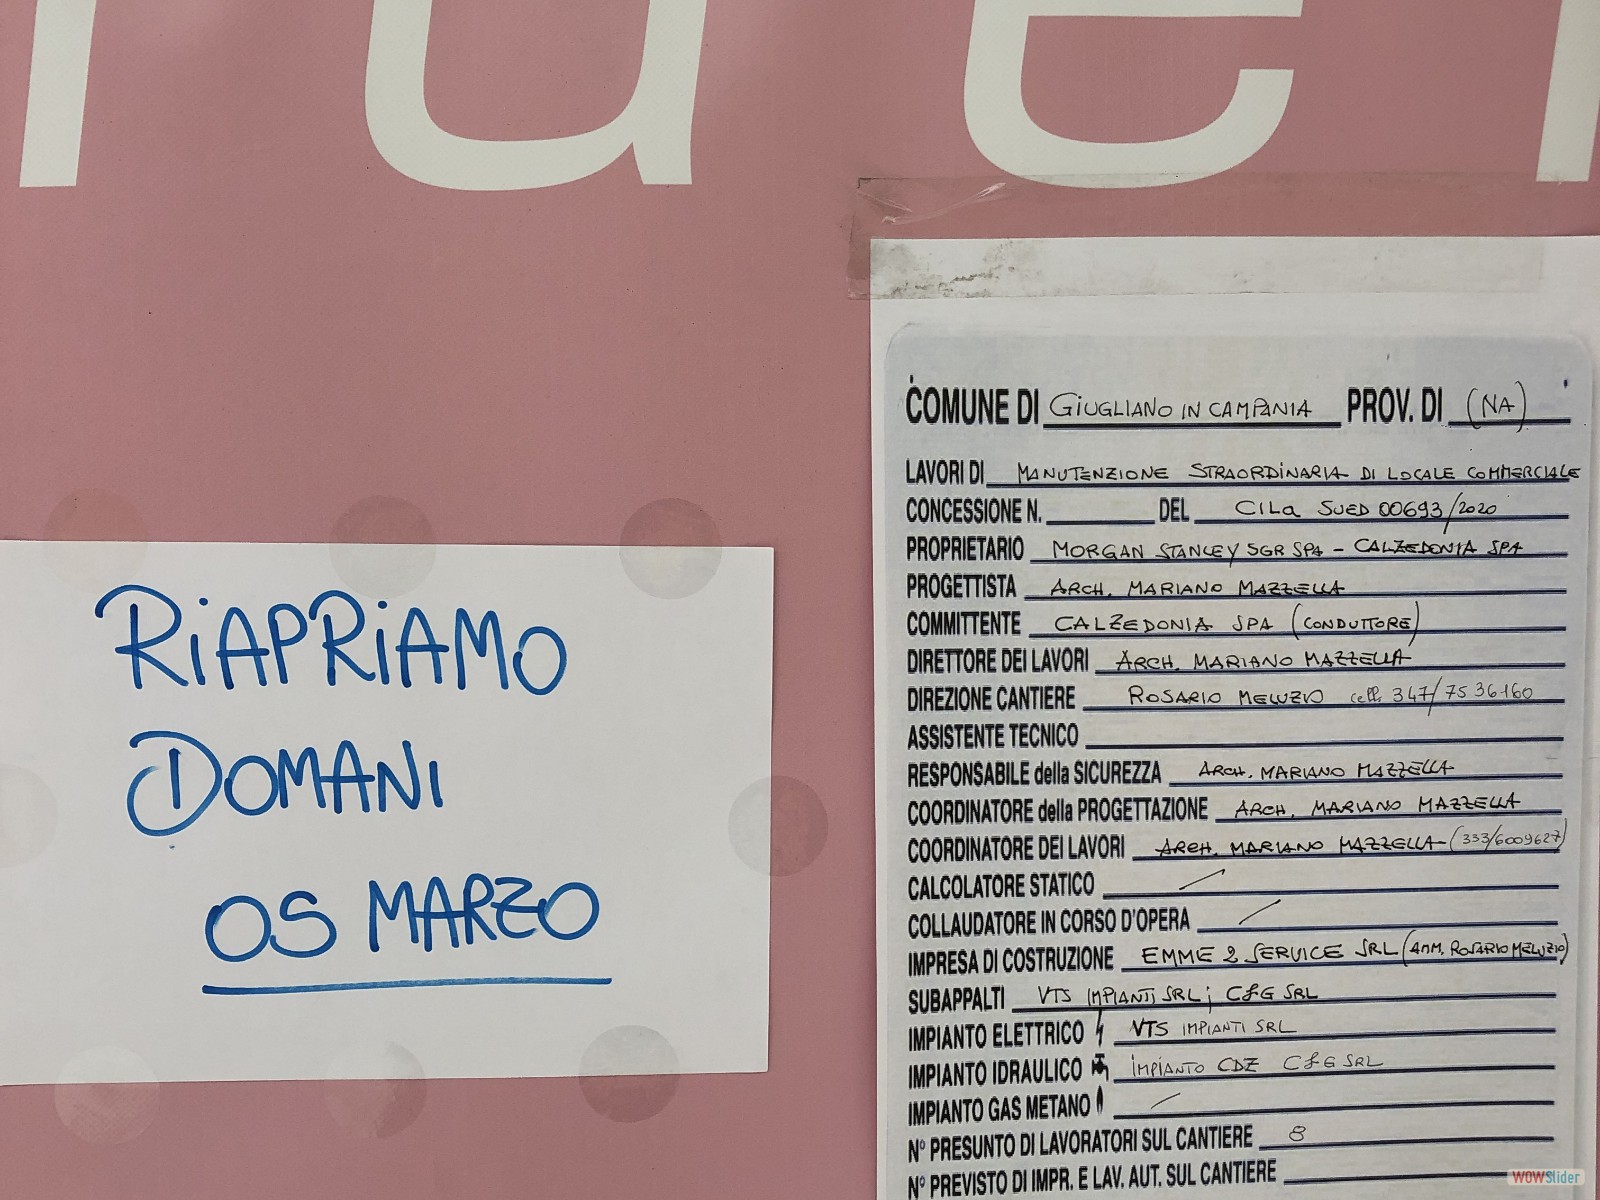 ruer
RiAPRiAMO
DOMANI
05 MARZO
COMUNE DI GIUGLIANO IN CAMPANIA PROV. DI (NA)
LAVORI DI MANUTENZIONE STRAORDINARIA DI LOCALE COMMERCIALE
CONCESSIONE N. DEL CILa SUED 00693/2020
PROPRIETARIO MORGAN STANLEY SGR SPA - CALZEDONIA SPA
PROGETTISTA ARCH. MARIANO MAZZELLA
COMMITTENTE CALZEDONIA SPA (CONDUTTORE)
DIRETTORE DEI LAVORI ARCH. MARIANO MAZZELLA
DIREZIONE CANTIERE ROSARIO MELUZIO cell. 347/7536160
ASSISTENTE TECNICO
RESPONSABILE della SICUREZZA ARCH. MARIANO MAZZELLA
COORDINATORE della PROGETTAZIONE ARCH. MARIANO MAZZELLA
COORDINATORE DEI LAVORI ARCH. MARIANO MAZZELLA - (333/6009627)
CALCOLATORE STATICO /
COLLAUDATORE IN CORSO D'OPERA /
IMPRESA DI COSTRUZIONE EMME 2 SERVICE SRL (AMM. ROSARIO MELUZIO)
SUBAPPALTI VTS IMPIANTI SRL; C&G SRL
IMPIANTO ELETTRICO VTS IMPIANTI SRL
IMPIANTO IDRAULICO IMPIANTO CDZ C&G SRL
IMPIANTO GAS METANO /
N° PRESUNTO DI LAVORATORI SUL CANTIERE 8
N° PREVISTO DI IMPR. E LAV. AUT. SUL CANTIERE
WOWSlider